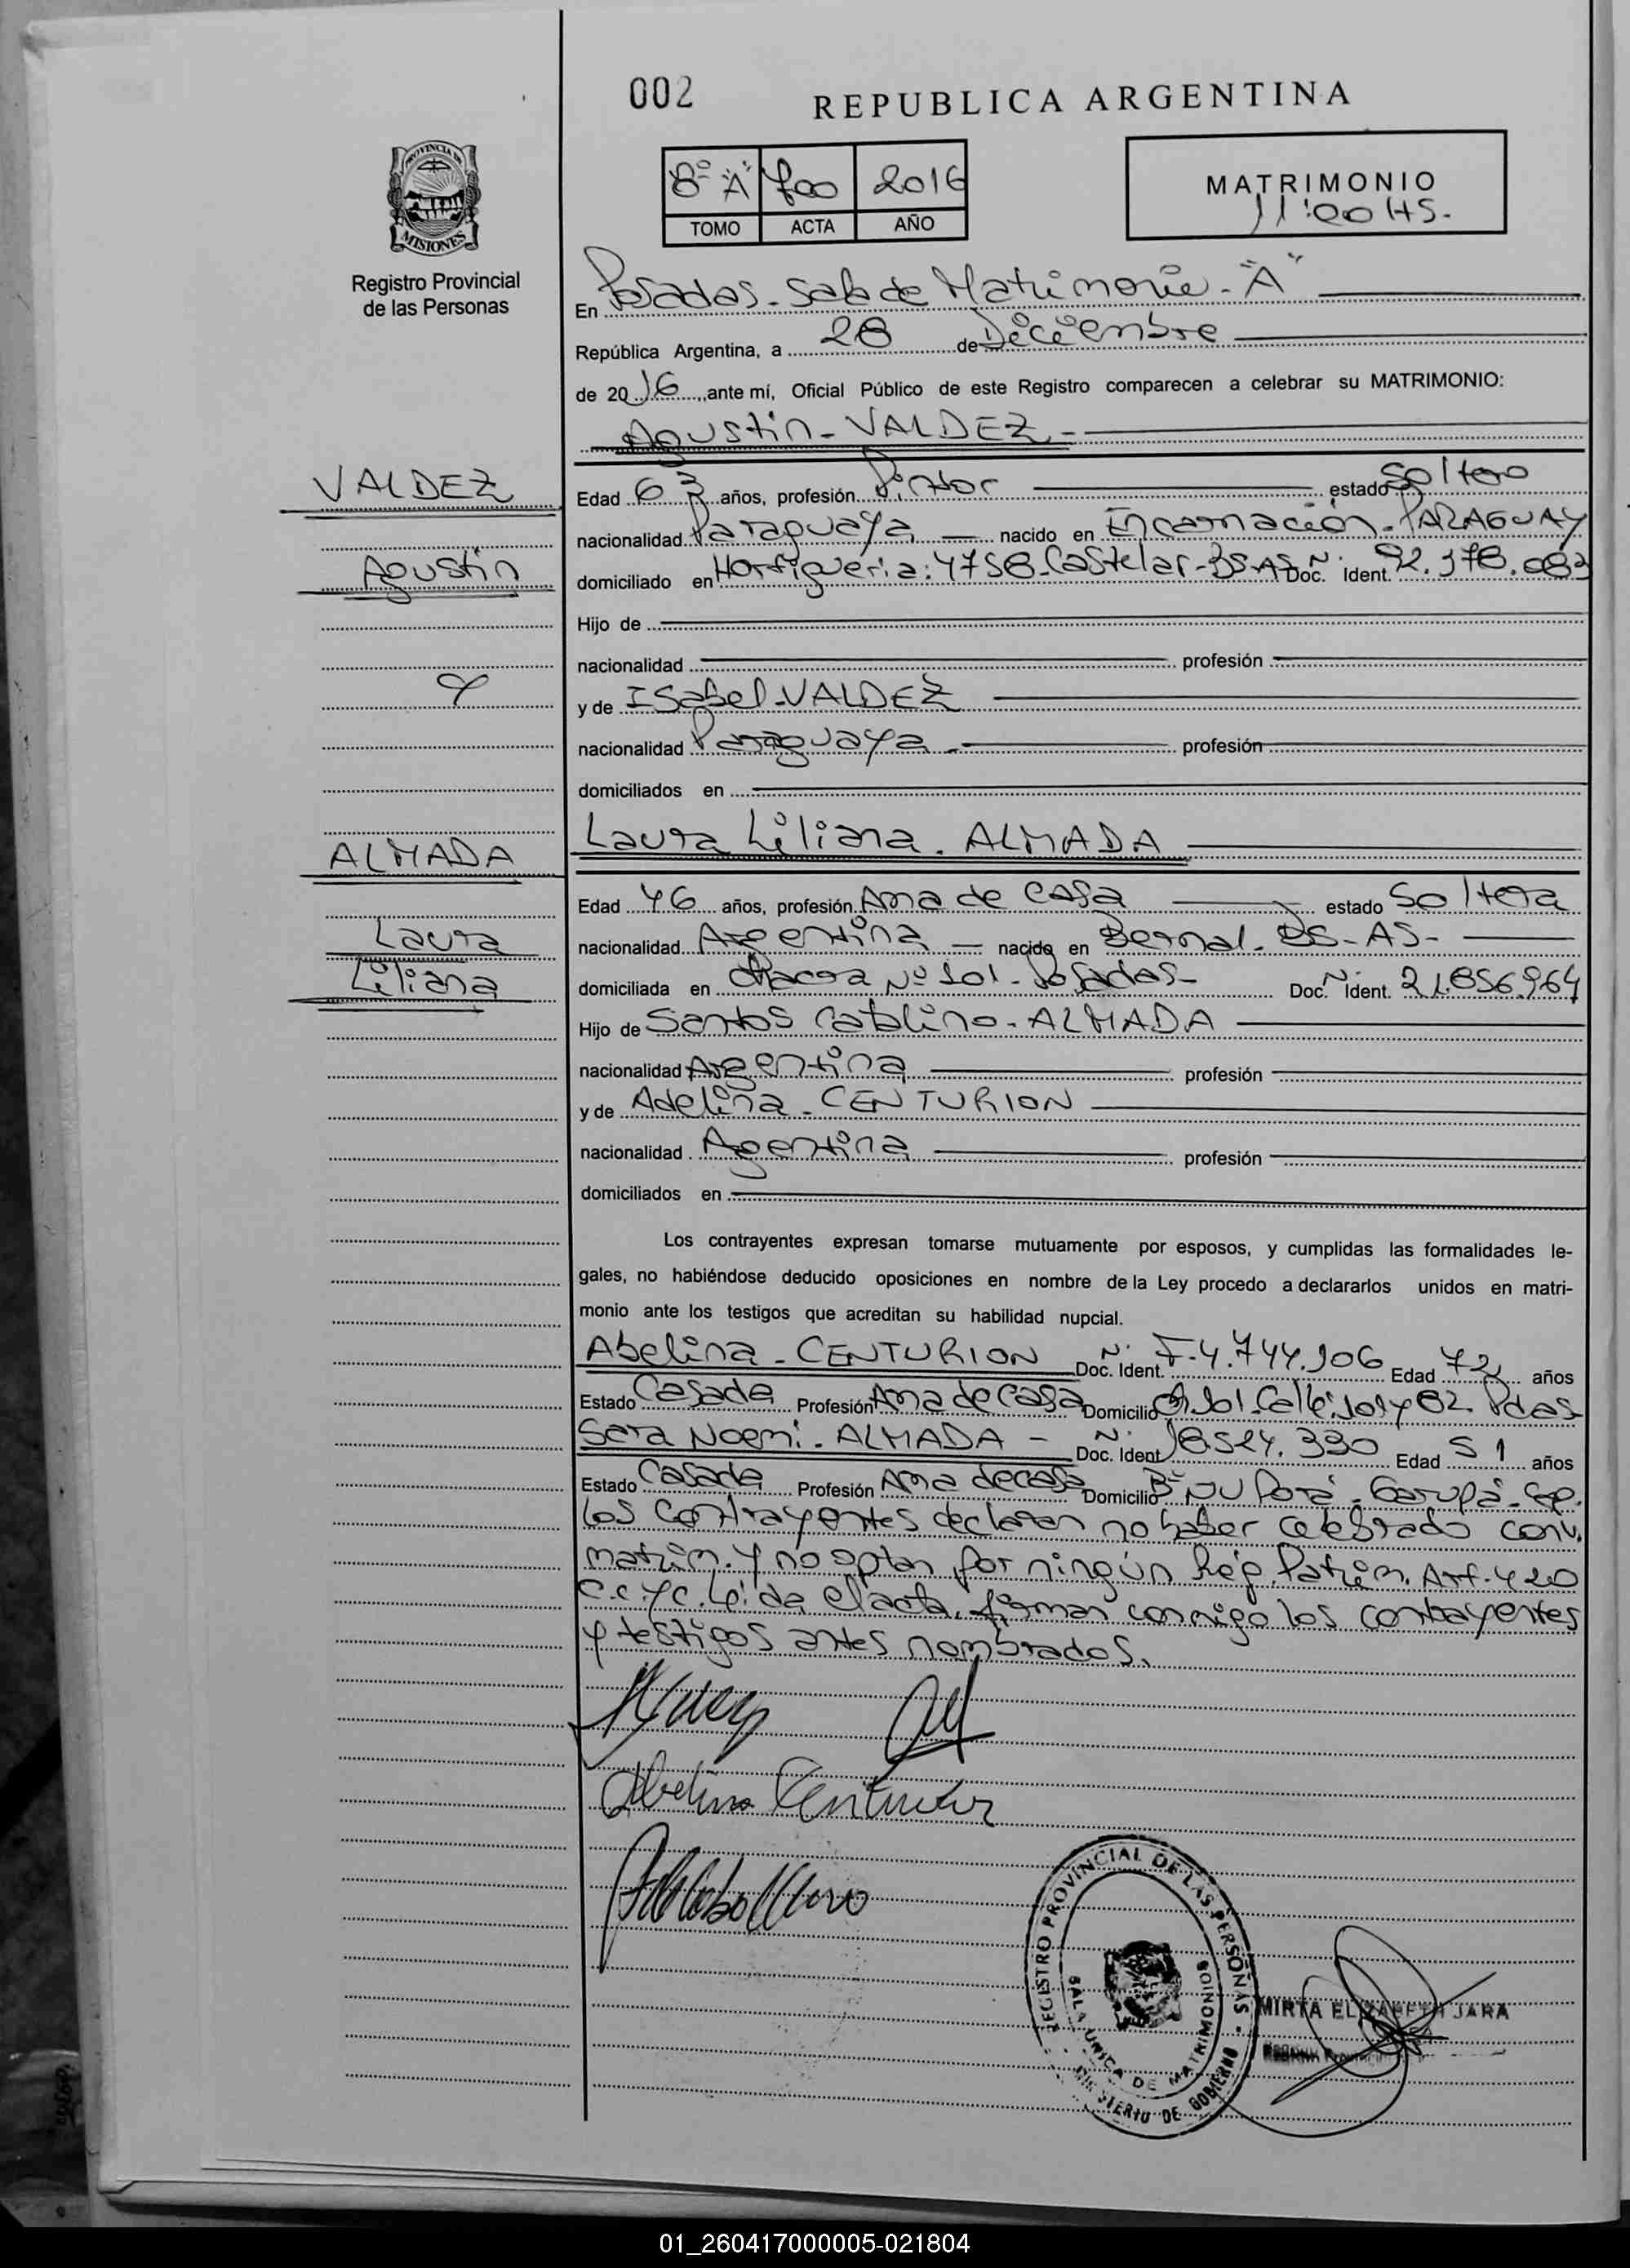 002
REPUBLICA ARGENTINA
8º "A" 700 2016
TOMO ACTA AÑO
MATRIMONIO
11:00 HS.
PROVINCIA DE
MISIONES
Registro Provincial
de las Personas
En Posadas - Sala de Matrimonio - "A"
República Argentina, a 28 de Diciembre
de 2016, ante mí, Oficial Público de este Registro comparecen a celebrar su MATRIMONIO:
Agustin - VALDEZ -
VALDEZ
Agustin
Edad 63 años, profesión Pintor estado Soltero
nacionalidad Paraguaya nacido en Encarnación - PARAGUAY
domiciliado en Hortigueria: 4758 - Castelar - BS-AS Doc. Nº Ident. 92.378.083
Hijo de
nacionalidad profesión
y
y de Isabel - VALDEZ
nacionalidad Paraguaya - profesión
domiciliados en
Laura Liliana - ALMADA
ALMADA
Laura
Liliana
Edad 46 años, profesión Ama de casa estado Soltera
nacionalidad Argentina nacido en Bernal - BS-AS-
domiciliada en Chacra Nº 101 - Posadas - Doc. Nº Ident. 21.856.964
Hijo de Santos Catalino - ALMADA
nacionalidad Argentina profesión
y de Adelina - CENTURION
nacionalidad Agentina profesión
domiciliados en
Los contrayentes expresan tomarse mutuamente por esposos, y cumplidas las formalidades le-
gales, no habiéndose deducido oposiciones en nombre de la Ley procedo a declararlos unidos en matri-
monio ante los testigos que acreditan su habilidad nupcial.
Abelina - CENTURION Doc. Nº Ident. F.4.744.106 Edad 72 años
Estado Casada Profesión Ama de casa Domicilio Ch. 101 Calle: 109 y 82. Pdas
Sara Noemi - ALMADA - Doc. Nº Ident. 18.524.330 Edad 51 años
Estado Casada Profesión Ama de casa Domicilio Bº Ñu Porá - Garupá - Cap.
Los Contrayentes declaran no haber celebrado conv.
matrim. y no optan por ningún Rég. Patrim. Art. 420
C.C.yC. Leída el acta, firman conmigo los contrayentes
y testigos antes nombrados.
Abelina Centurion
REGISTRO PROVINCIAL DE LAS PERSONAS
SALA UNICA DE MATRIMONIOS
MINISTERIO DE GOBIERNO
MIRTA ELIZABETH JARA
01_260417000005-021804